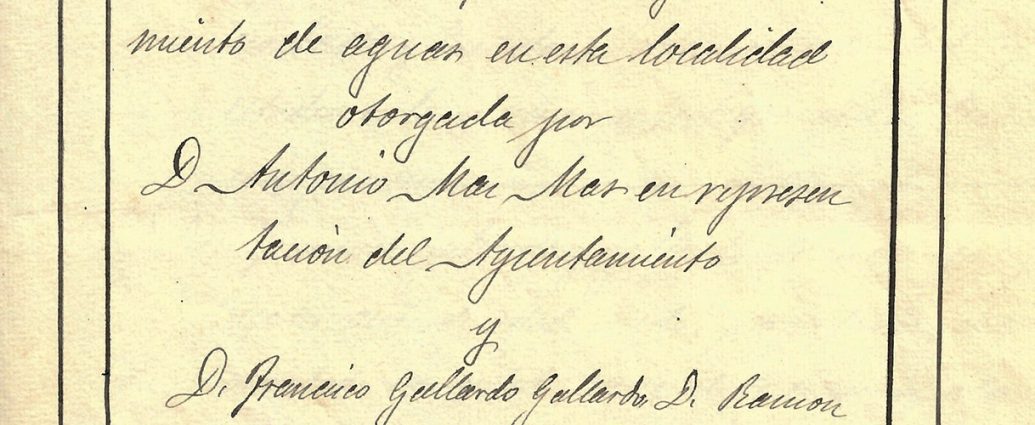 miento de aguas en esta localidad
otorgada por
D Antonio Mas Mas en represen
tación del Ayuntamiento
y
D. Francisco Gallardo Gallardo, D. Ramon